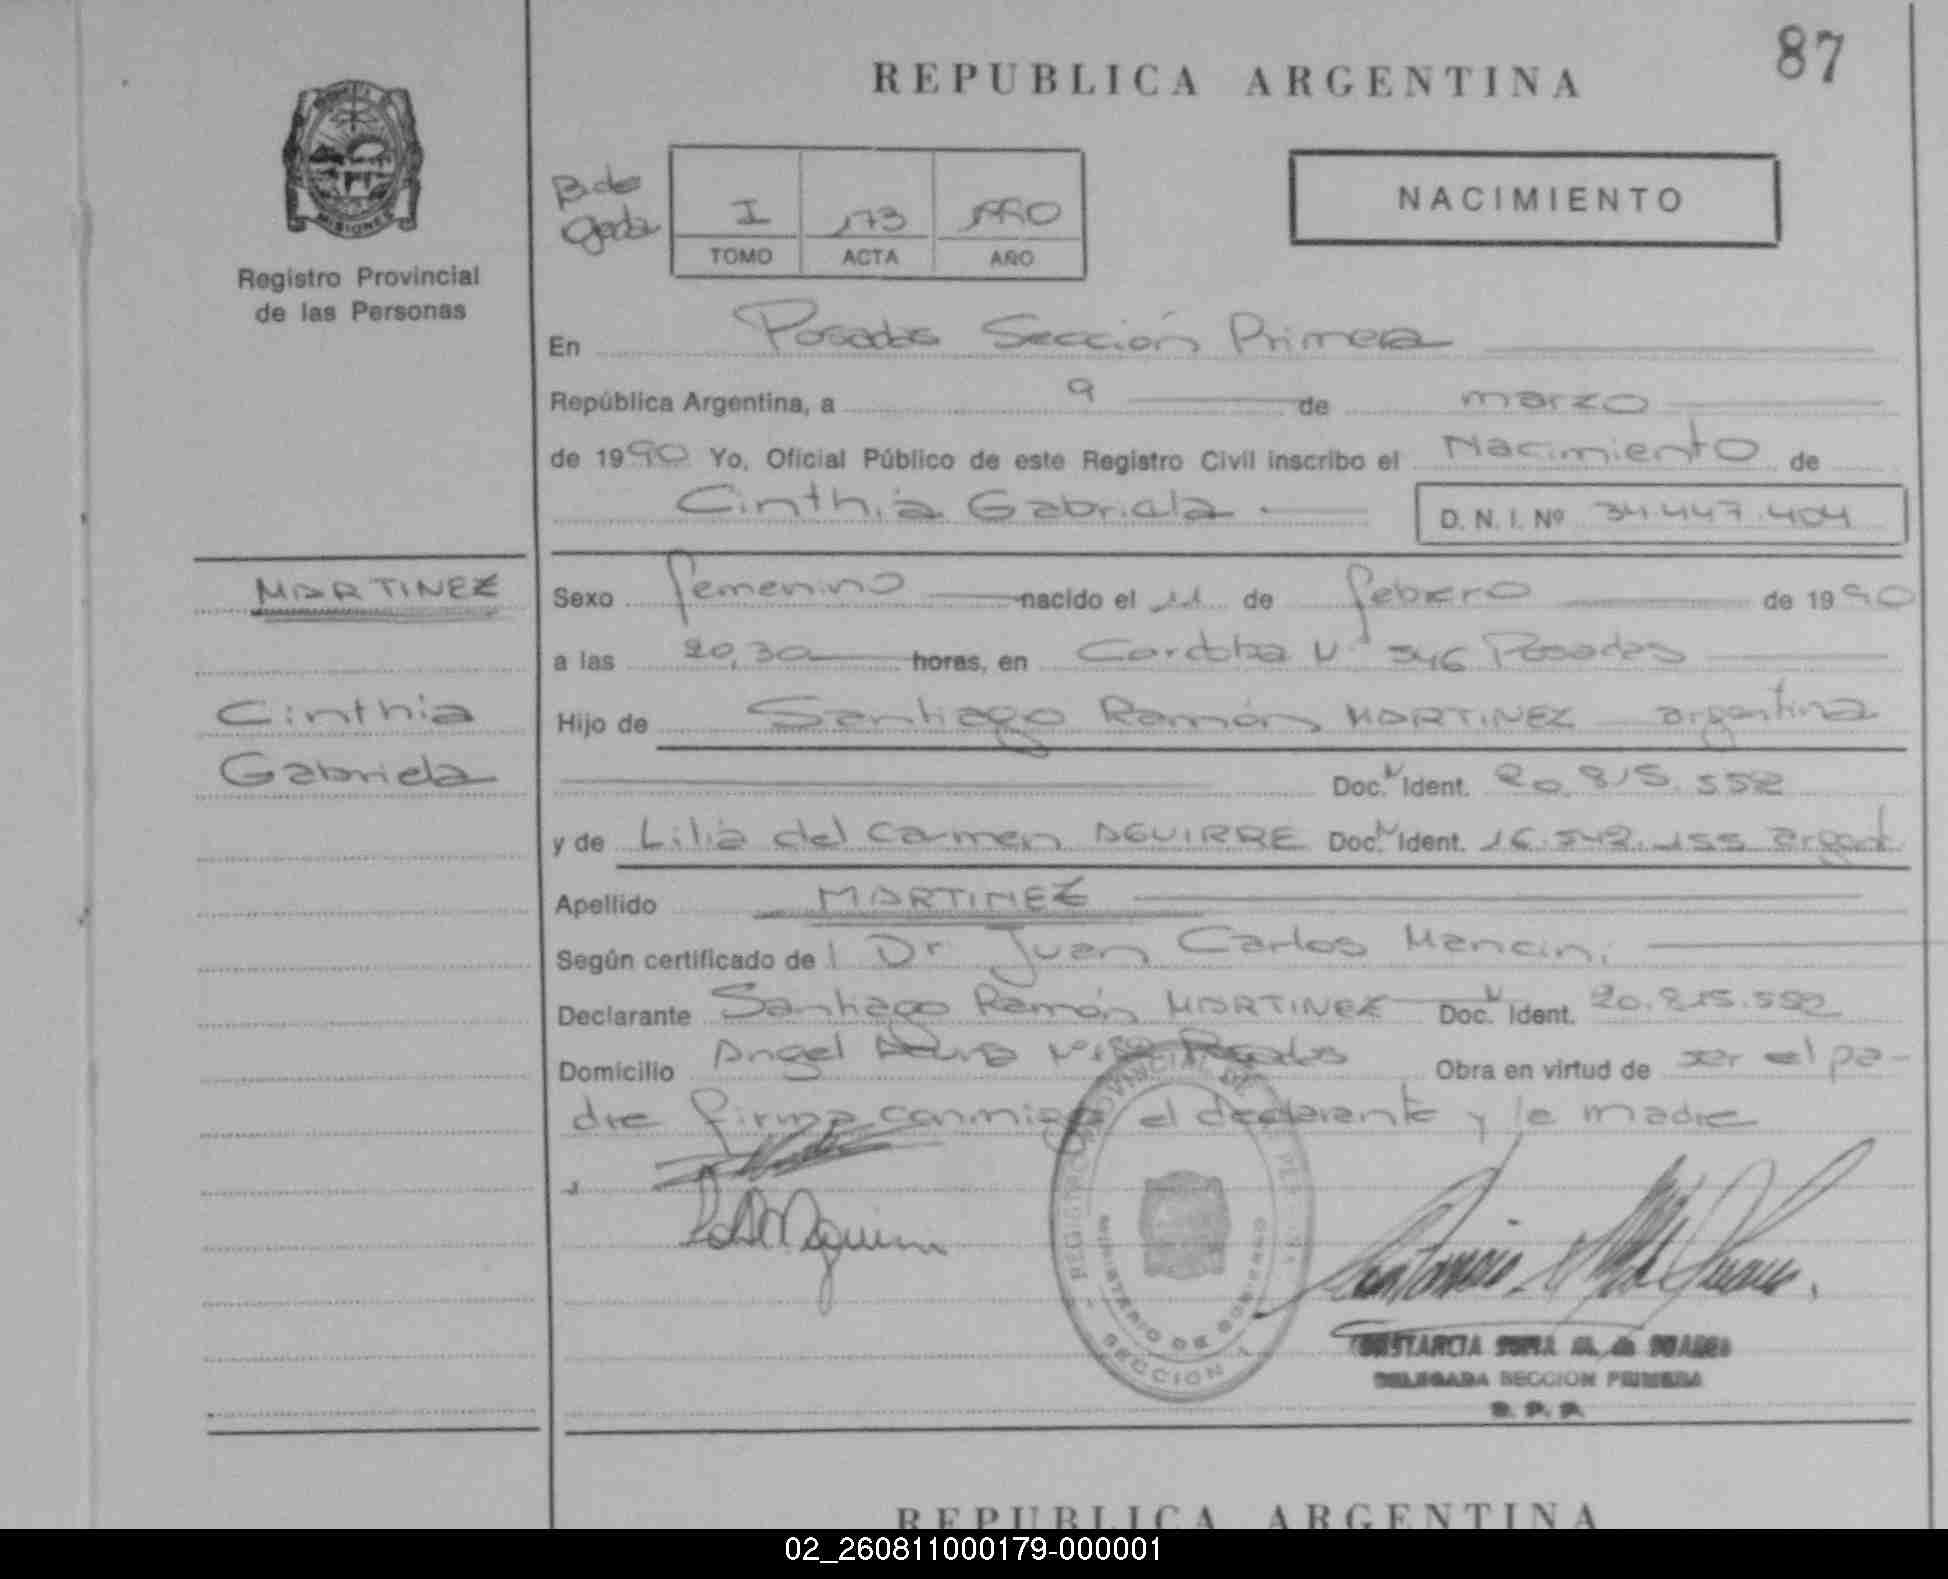 87
REPUBLICA ARGENTINA
NACIMIENTO
I 173 1990
TOMO ACTA AÑO
MISIONES
Registro Provincial
de las Personas
En Posadas Sección Primera
República Argentina, a 9 de marzo
de 1990 Yo, Oficial Público de este Registro Civil inscribo el Nacimiento de
Cinthia Gabriela D. N. I. Nº 34.447.404
MARTINEZ
Cinthia
Gabriela
Sexo femenino nacido el 11 de febrero de 1990
a las 20,30 horas, en Cordoba Nº 546 Posadas
Hijo de Santiago Ramón MARTINEZ argentina
Doc. N Ident. 20.815.552
y de Lilia del Carmen AGUIRRE Doc. N Ident. 16.542.155 argent.
Apellido MARTINEZ
Según certificado del Dr Juan Carlos Mancini
Declarante Santiago Ramón MARTINEZ Doc. N Ident. 20.815.552
Domicilio Angel Posadas Obra en virtud de ser el pa-
dre firma conmigo el declarante y la madre
REGISTRO PROVINCIAL DE LAS PERSONAS
MINISTERIO DE GOBIERNO
SECCION 1
DELEGADA SECCION PRIMERA
R. P. P.
REPUBLICA ARGENTINA
02_260811000179-000001